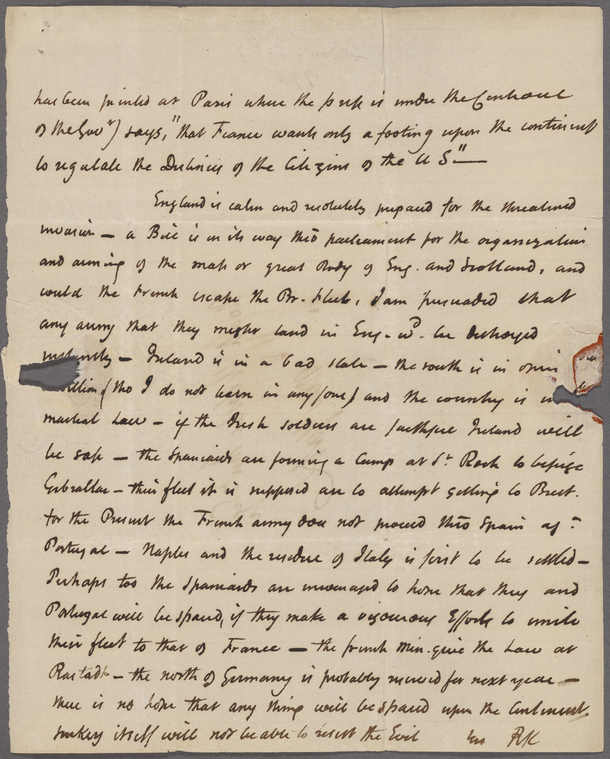 has been printed at Paris where the press is under the Controul
of the Govr) says, "that France wants only a footing upon the continent
to regulate the Destinies of the Citizens of the U S" —
England is calm and resolutely prepared for the threatened
invasion — a Bill is in its way thro parliament for the organization
and arming of the mass or great Body of Eng. and Scotland, and
would the French escape the Br. fleet, I am persuaded that
any army that they might land in Eng. wd. be destroyed
instantly — Ireland is in a bad state — the south is in open
rebellion (tho I do not learn in any force) and the country is in
martial Law — if the Irish soldiers are faithful Ireland will
be safe — the Spaniards are forming a Camp at St. Rock to besiege
Gibraltar — their fleet it is supposed are to attempt getting to Brest.
for the Present the French army does not proceed thro Spain agt.
Portugal — Naples and the residue of Italy is first to be settled —
Perhaps too the Spaniards are encouraged to hope that they and
Portugal will be spared, if they make a vigourous Efforts to unite
their fleet to that of France — the french Min. give the Law at
Rastadt — the north of Germany is probably reserved for next year —
there is no hope that any thing will be spared upon the Continent.
Turkey itself will not be able to resist the Evil RK